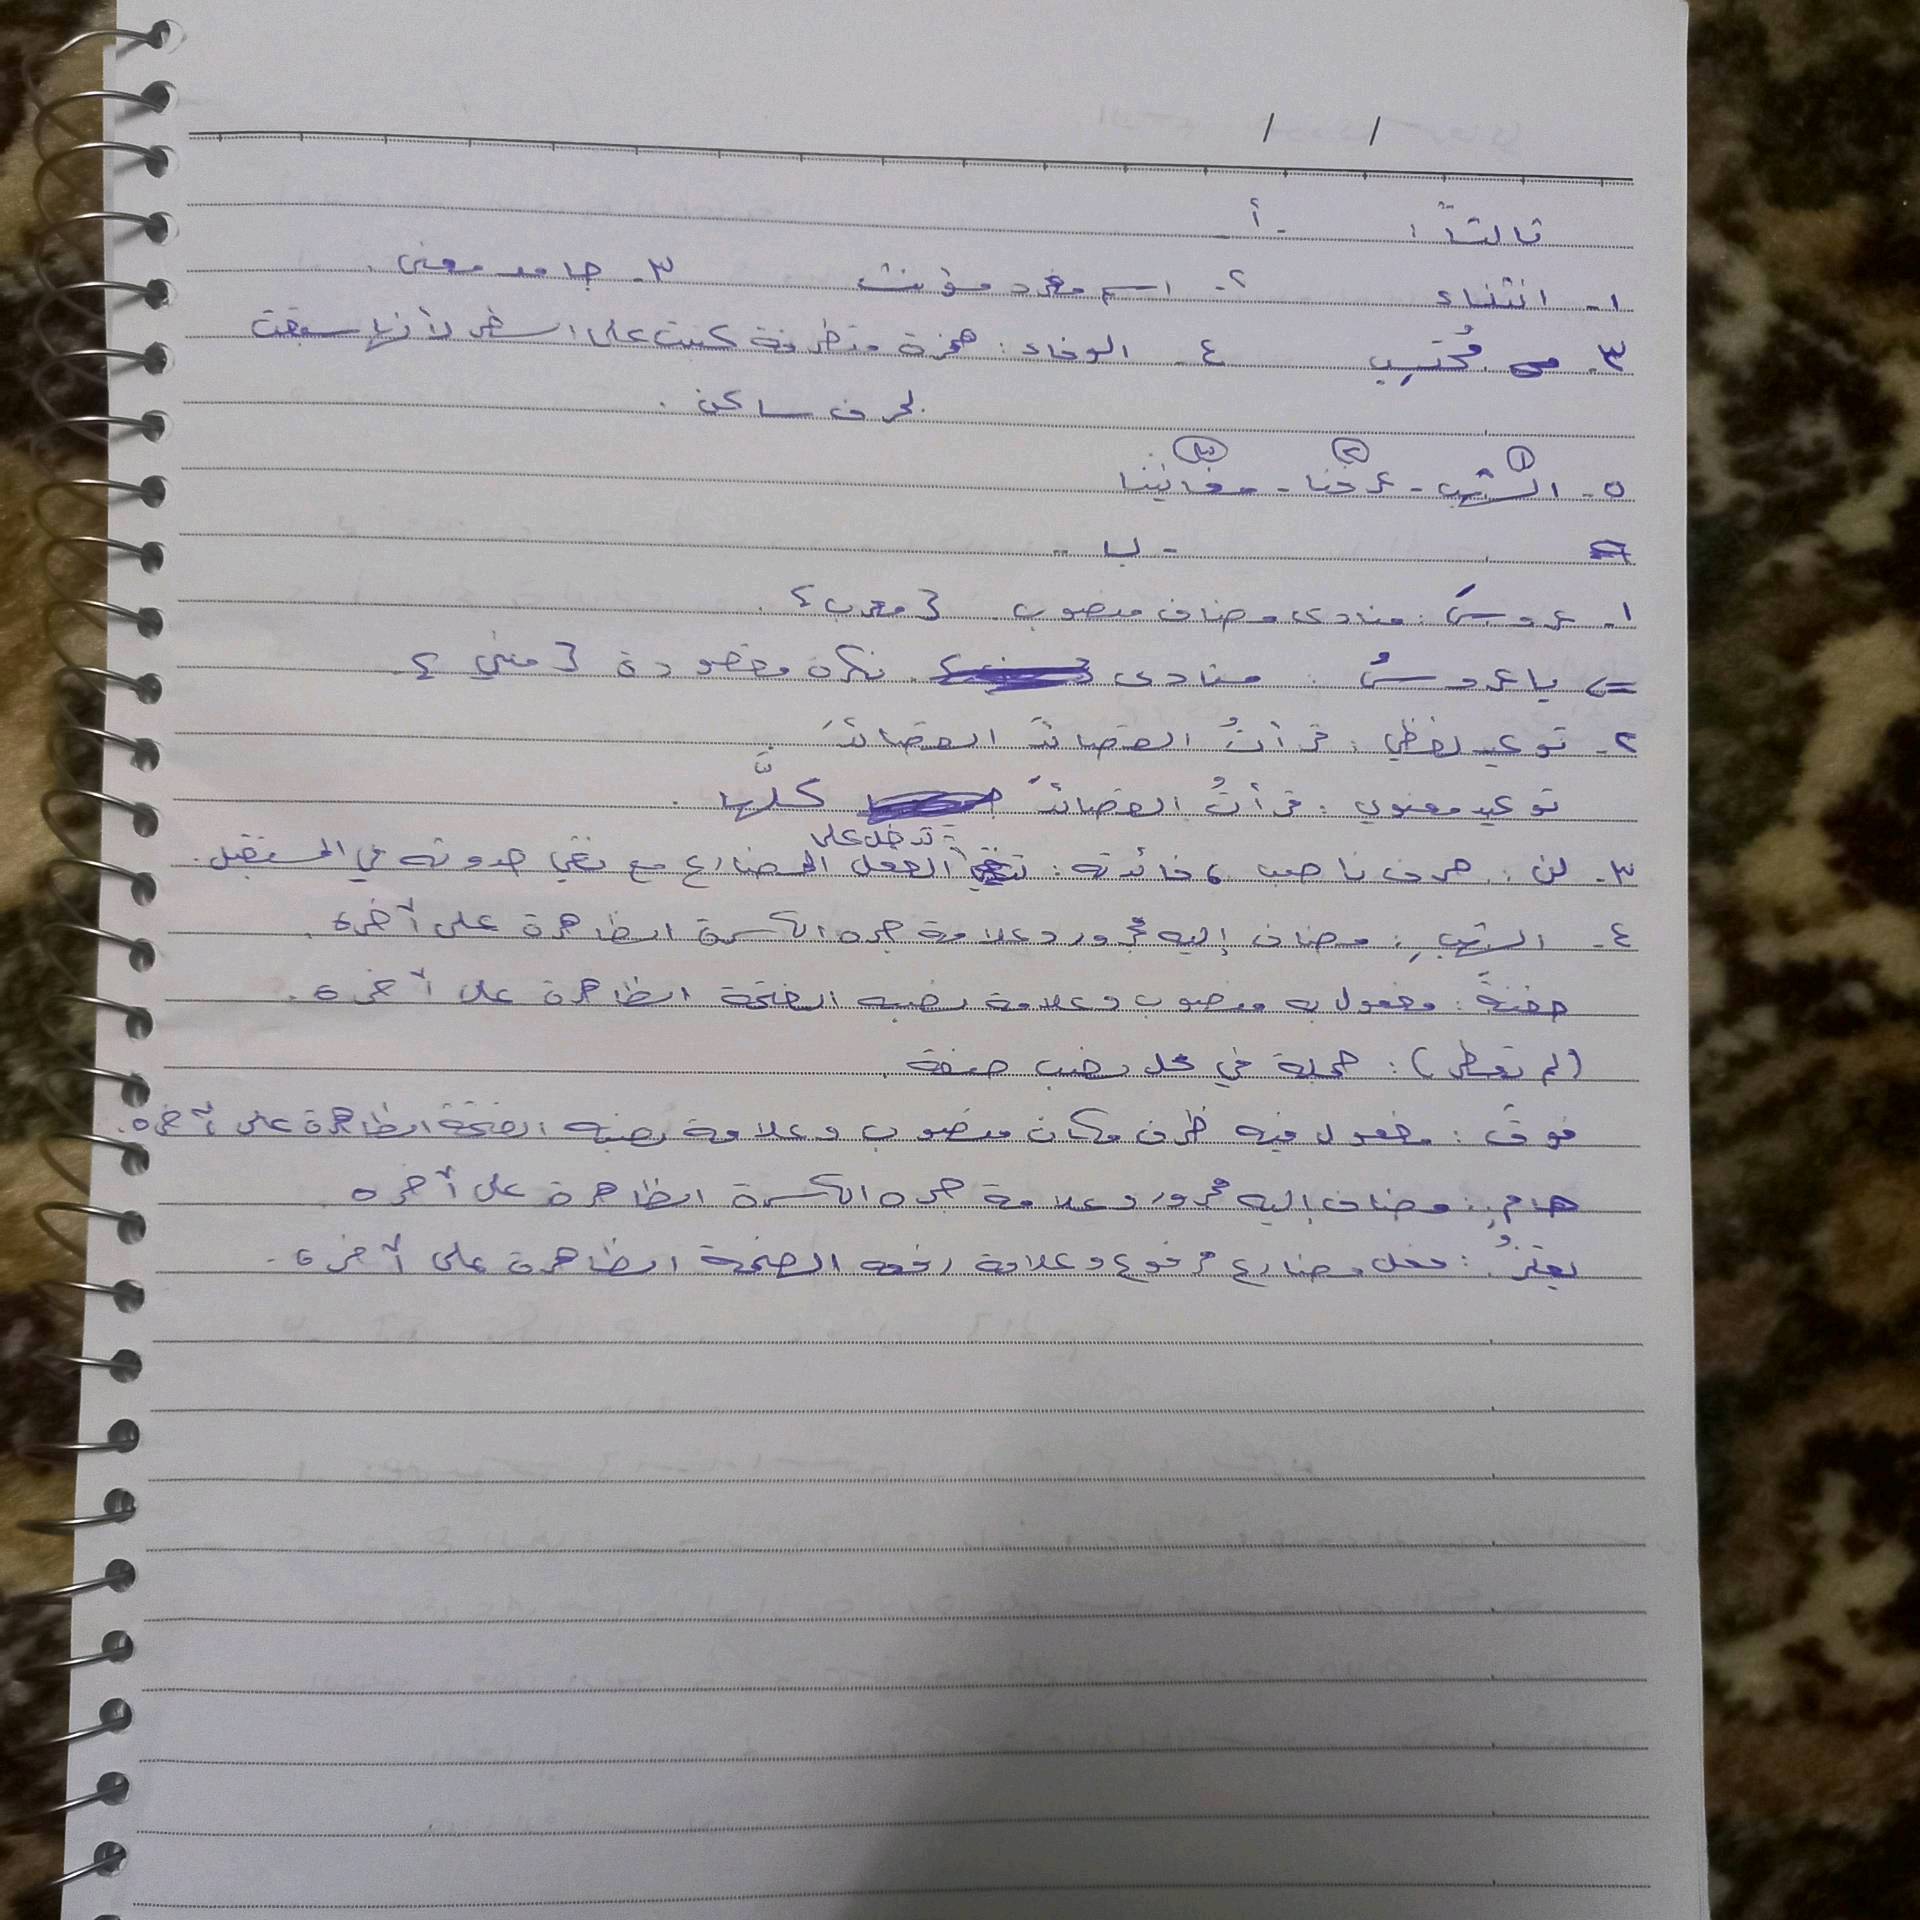 / /
ثالثاً : - أ -
١- انتشاء ٢- اسم مفرد مؤنث ٣- جامد معنى .
٣- مُجتَنِب ٤- الوفاء : همزة متطرفة كتبت على السطر لأنها سبقت
بحرف ساكن .
٥- الشهب - عرفنا - مغانينا
① ② ③
- ب -
١- عروسَ : منادى مضاف منصوب {معرب} .
<= يا عروسُ : منادى نكرة مقصودة {مبني} .
٢- توكيد لفظي : قرأتُ القصائدَ القصائدَ .
توكيد معنوي : قرأتُ القصائدَ كلَّها .
٣- لن : حرف ناصب ، فائدته : تدخل على الفعل المضارع مع نفي حدوثه في المستقبل .
٤- الشهبِ : مضاف إليه مجرور وعلامة جره الكسرة الظاهرة على آخره .
حفنةً : مفعول به منصوب وعلامة نصبه الفتحة الظاهرة على آخره .
(لم تعطر) : جملة في محل نصب صفة .
فوقَ : مفعول فيه ظرف مكان منصوب وعلامة نصبه الفتحة الظاهرة على آخره .
هامِ : مضاف إليه مجرور وعلامة جره الكسرة الظاهرة على آخره .
يعتزُّ : فعل مضارع مرفوع وعلامة رفعه الضمة الظاهرة على آخره .